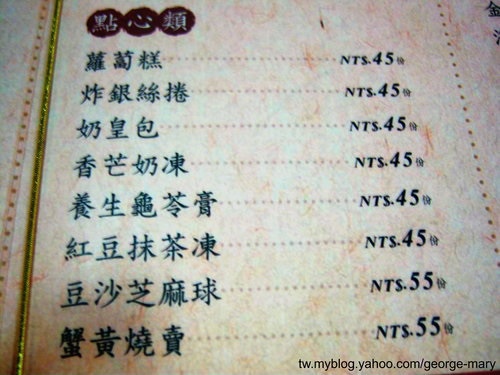 點心類
蘿蔔糕 NT$.45份
炸銀絲捲 NT$.45份
奶皇包 NT$.45份
香芒奶凍 NT$.45份
養生龜苓膏 NT$.45份
紅豆抹茶凍 NT$.45份
豆沙芝麻球 NT$.55份
蟹黃燒賣 NT$.55份
tw.myblog.yahoo.com/george-mary